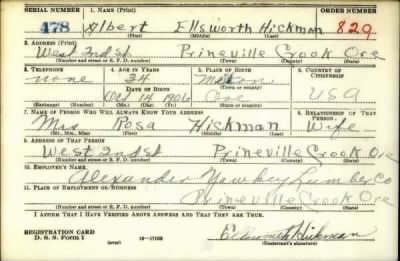 SERIAL NUMBER 1. NAME (Print) ORDER NUMBER
478 Albert Ellsworth Hickman 829
(First) (Middle) (Last)
2. ADDRESS (Print)
West 2nd St Prineville Crook Ore
(Number and street or R. F. D. number) (Town) (County) (State)
3. TELEPHONE 4. AGE IN YEARS 5. PLACE OF BIRTH 6. COUNTRY OF CITIZENSHIP
none 34
DATE OF BIRTH (Town or county)
Oct 14 1906 Ore USA
(Exchange) (Number) (Mo.) (Day) (Yr.) (State or country)
7. NAME OF PERSON WHO WILL ALWAYS KNOW YOUR ADDRESS 8. RELATIONSHIP OF THAT PERSON
Mrs Rosa Hickman Wife
(Mr., Mrs., Miss) (First) (Middle) (Last)
9. ADDRESS OF THAT PERSON
West 2nd St Prineville Crook Ore
(Number and street or R. F. D. number) (Town) (County) (State)
10. EMPLOYER'S NAME
Alexander Yawkey Lumber Co
11. PLACE OF EMPLOYMENT OR BUSINESS
Prineville Crook Ore
(Number and street or R. F. D. number) (Town) (County) (State)
I AFFIRM THAT I HAVE VERIFIED ABOVE ANSWERS AND THAT THEY ARE TRUE.
REGISTRATION CARD
D. S. S. Form 1 (over) Ellsworth Hickman
(Registrant's signature)